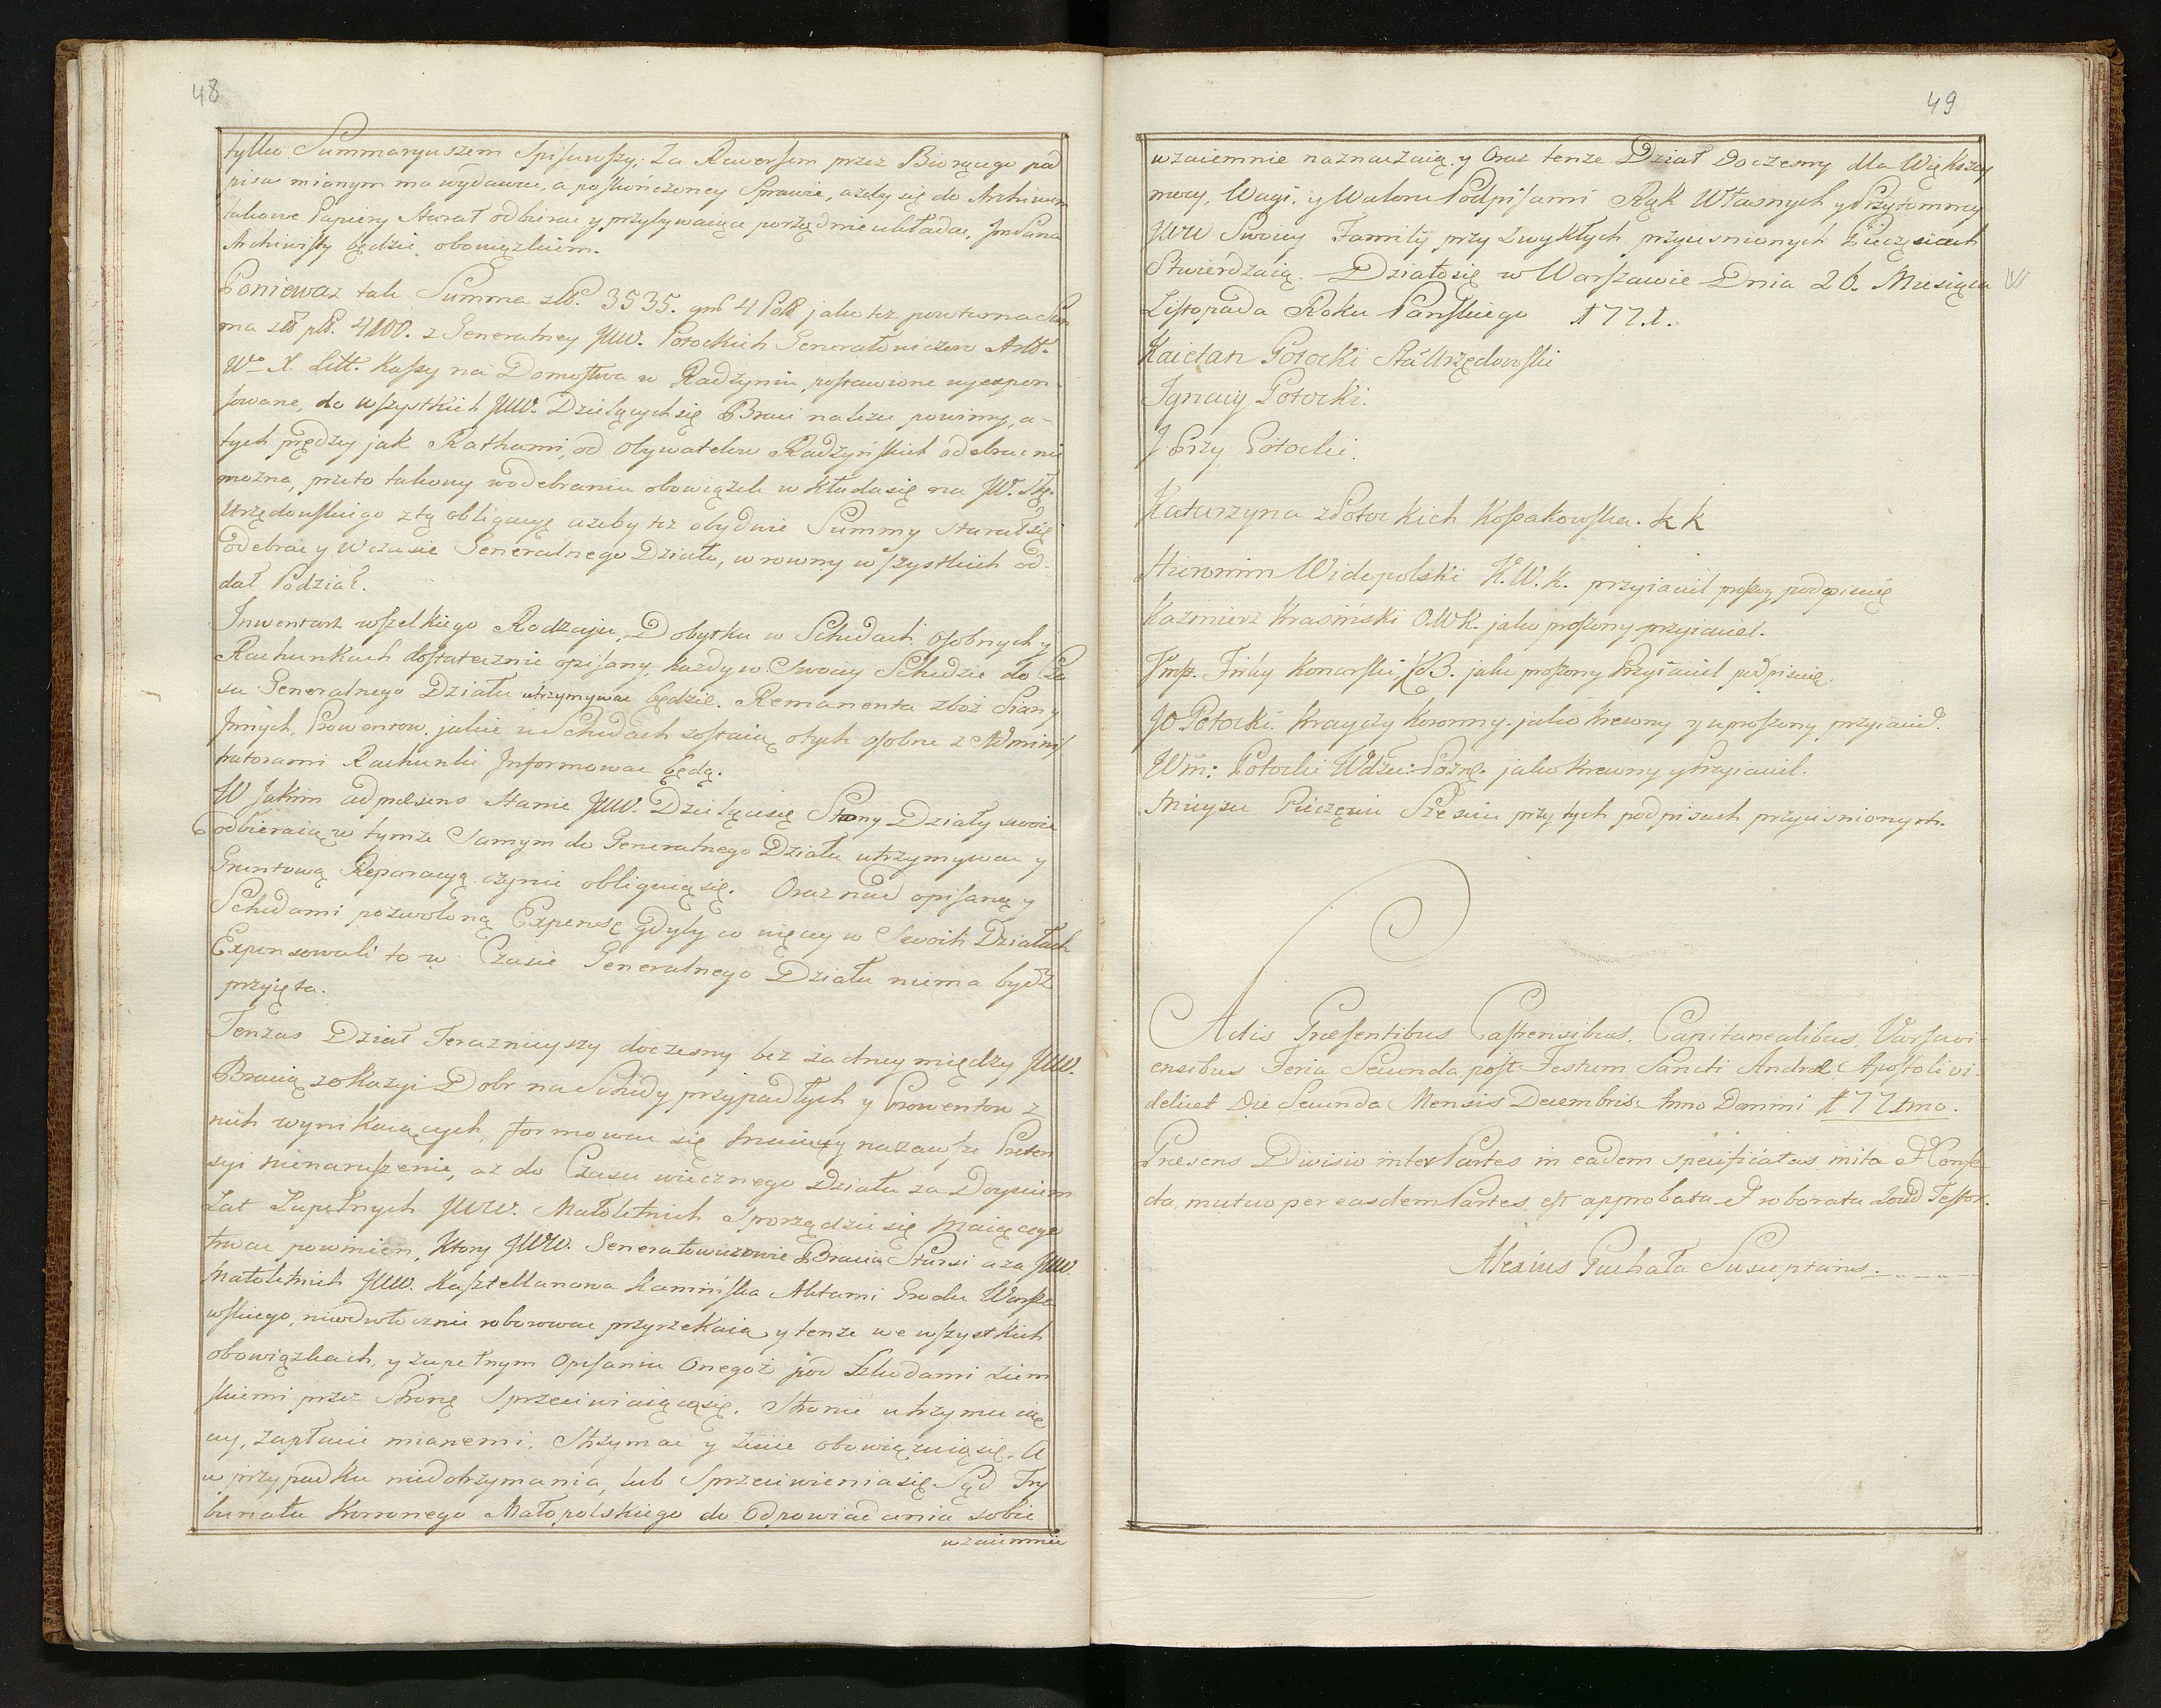 48
tylko Summaryuszem Spisawszy, Za Rewersem przez Biorącego pod
pisać mianym ma wydawać, a po skończoney Sprawie, ażeby się do Archiwum
takowe Papiery starał odbierać y przybywaiące porządnie układać, Jm Pana
Archiwisty będzie obowiązkiem.
Ponieważ tak Summa zło. 3535. gro 4 Pol. jako też powturna Sum
ma zło po. 4000. z Generalney JWW. Potockich Generałowiczow Artt.
Wo X. Litt. Kassy na Domostwa w Radzyniu postawione wyexpen-
sowane, do wszystkich JWW. Dzielących się Braci należeć powinny, a-
tych prędzey jak Rathami, od Obywatelow Radzyńskich odebrać nie
można, przeto takowy w odebraniu obowiązek wkłada się na JW. Stę.
Urzędowskiego z tą obligacyę ażeby też obydwie Summy starał się
odebrać y w czasie Generalnego Działu, w rowny wszystkich od-
dał Podział.
Inwentarz wszelkiego Rodzaju, Dobytku w Schedach osobnych y
Rachunkach dostatecznie opisany, każdy w Swoiey Schedzie do Cza
su Generalnego Działu utrzymywać będzie. Remanenta zboż Siana y
Innych Prowentow, jakie w Schedach zostaią, o tych osobne z Adminis
tratorami Rachunki Informować będą.
W Jakim ad præsens Stanie JWW. Dzielące się Strony Działy swoie
odbieraią w tymże Samym do Generalnego Działu utrzymywać y
Gruntową Reparacyą czynić obliguią się. Oraz nad opisaną y
Schedami pozwoloną Expensę Gdyby co więcey w Swoich Działach
Expensowali to w Czasie Generalnego Działu niema bydź
przyięta.
Tenżas Dział Terazniejszy doczesny bez żadney między JWW.
Bracią z okazyi Dobr na Schedy przypadłych y Prowentow z
nich wynikaiących, formować się maiącey nazawsze Preten
syi nienaruszenie, aż do Czasu wiecznego Działu za Doyściem
Lat Zupełnych JWW. Małoletnich Sporządzić się maiącego
trwać powinien, Ktory JWW. Generałowiczowie Bracia Starsi a za JWW.
Małoletnich JWW. Kasztellanowa Kamińska Aktami Grodu Warsza
wskiego, nieodwłocznie roborować przyrzekaią y tenże we wszystkich
obowiązkach, y zupełnym Opisaniu Onegoż pod Szkodami Ziem
skiemi przez Stronę Sprzeciwiaiącąsię. Stronie utrzymuią
cey, zapłacić mianemi, Strzymać y ziścić obowiązuią się. A
w przypadku niedotrzymania, lub Sprzeciwienia się Sąd Try
bunału Koronnego Małopolskiego do Odpowiadania sobie
wzaiemnie
49
wzaiemnie naznaczaią, y Oraz tenże Dział Doczesny dla Większey
mocy, Wagi, y Waloru Podpisami Rąk Własnych y Przytomney
JWW Swoiey Familij przy zwykłych przyciśnionych Pieczęciach
Stwierdzaią. Działo się w Warszawie Dnia 26. Miesiąca
Listopada Roku Pańskiego 1771.
Kaietan Potocki Sta Urzędowski
Ignacy Potocki.
J. Erzy Potocki.
Katarzyna z Potockich Kossakowska. K K
Hieronim Wielopolski K. W. K. przyiaciel proszony podpisuię
Kazimierz Krasiński O.W.K. jako proszony przyiaciel.
Jo Potocki Krayczy Koronny jako krewny y uproszony przyiaciel.
Win: Potocki jako krewny y Przyiaciel.
Mieysce Pieczęci Sześciu przy tych podpisach przyciśnionych.
Actis Præsentibus Castrensibus Capitanealibus Varsavi-
ensibus Feria Secunda post Festum Sancti Andreæ Apostoli vi-
delicet Die Secunda Mensis Decembris Anno Domini 1771mo.
Præsens Divisio inter Partes in eadem specificatas inita & Confe-
cta, mutuo per easdem Partes est approbata & roborata
Alexius Puchała Susceptans.